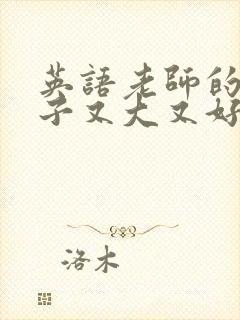 英語老師的
子又大又好
洛木